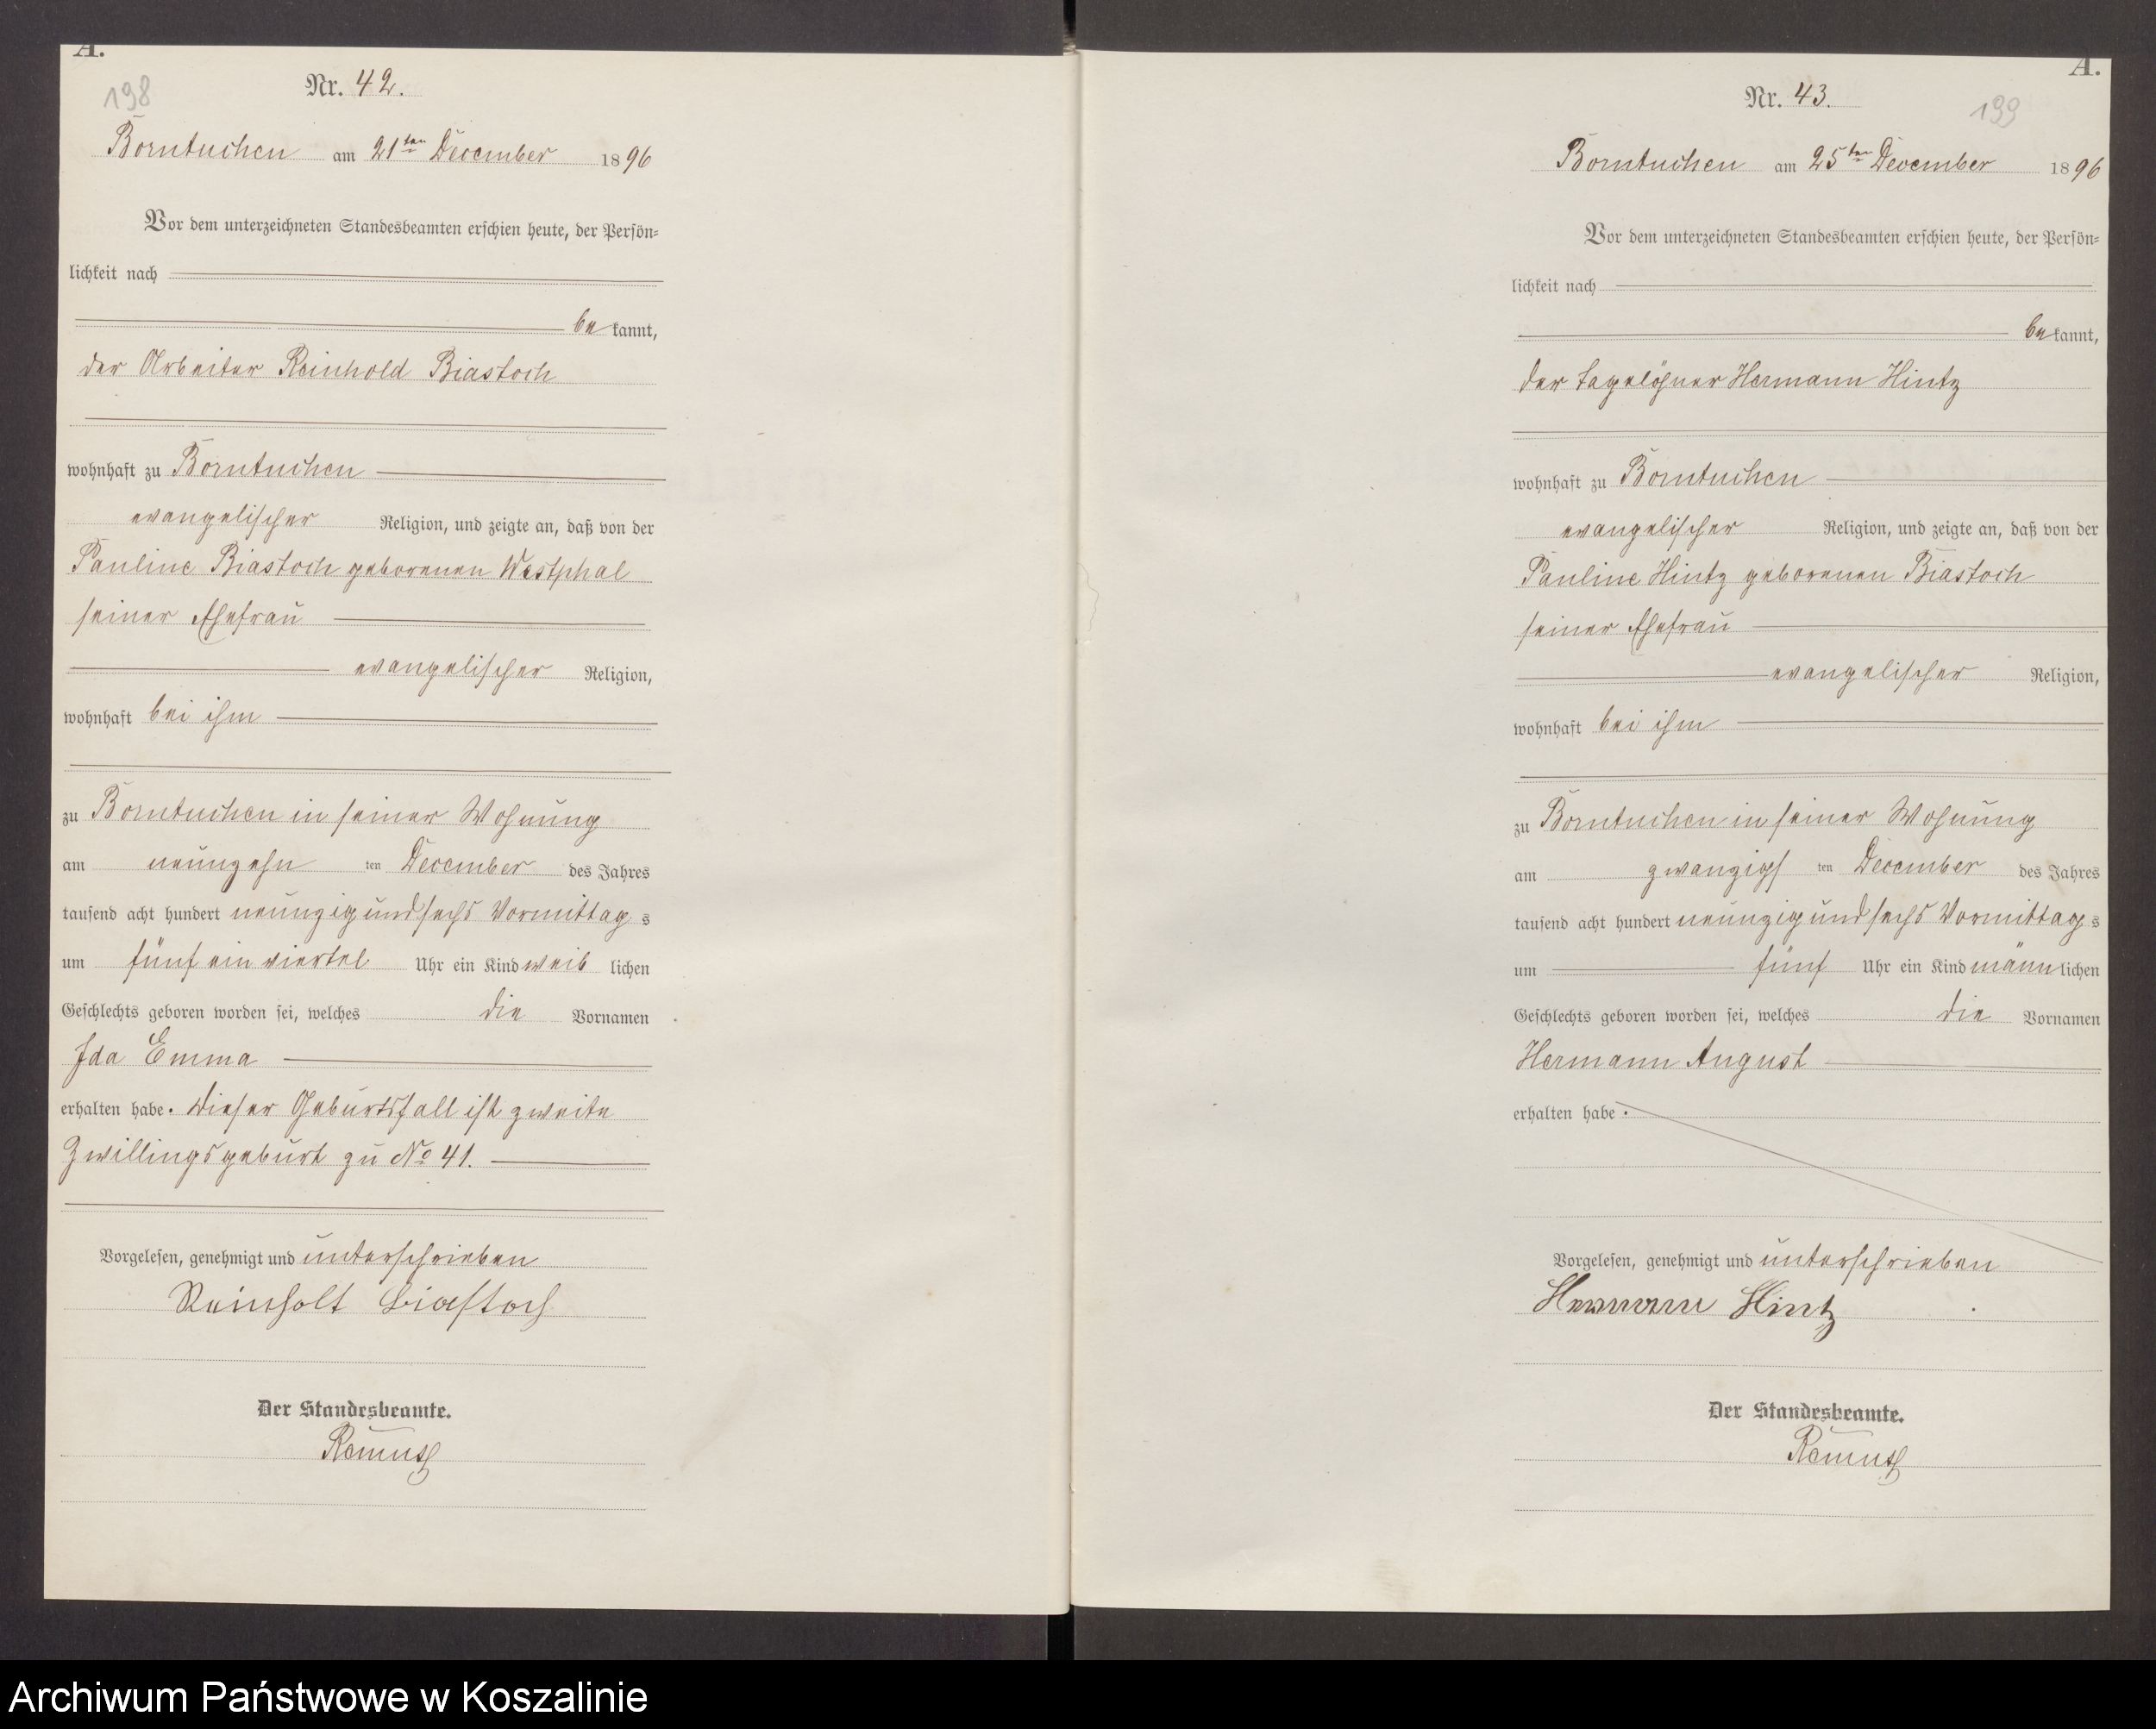 A.
198
Nr. 42.
Borntuchen am 21ten December 1896
Vor dem unterzeichneten Standesbeamten erschien heute, der Persön=
lichkeit nach
bekannt,
der Arbeiter Reinhold Biastoch
wohnhaft zu Borntuchen
evangelischer Religion, und zeigte an, daß von der
Pauline Biastoch geborenen Westphal
seiner Ehefrau
evangelischer Religion,
wohnhaft bei ihm
zu Borntuchen in seiner Wohnung
am neunzehn ten December des Jahres
tausend acht hundert neunzig und sechs Vormittags
um fünf ein viertel Uhr ein Kind weiblichen
Geschlechts geboren worden sei, welches die Vornamen
Ida Emma
erhalten habe. Dieser Geburtsfall ist zweite
Zwillingsgeburt zu No 41.
Vorgelesen, genehmigt und unterschrieben
Reinholt Biastoch
Der Standesbeamte.
Remus
A.
199
Nr. 43.
Borntuchen am 25ten December 1896
Vor dem unterzeichneten Standesbeamten erschien heute, der Persön=
lichkeit nach
bekannt,
der Tagelöhner Hermann Hintz
wohnhaft zu Borntuchen
evangelischer Religion, und zeigte an, daß von der
Pauline Hintz geborenen Biastoch
seiner Ehefrau
evangelischer Religion,
wohnhaft bei ihm
zu Borntuchen in seiner Wohnung
am zwanzigsten December des Jahres
tausend acht hundert neunzig und sechs Vormittags
um fünf Uhr ein Kind männlichen
Geschlechts geboren worden sei, welches die Vornamen
Hermann August
erhalten habe.
Vorgelesen, genehmigt und unterschrieben
Hermann Hintz
Der Standesbeamte.
Remus
Archiwum Państwowe w Koszalinie